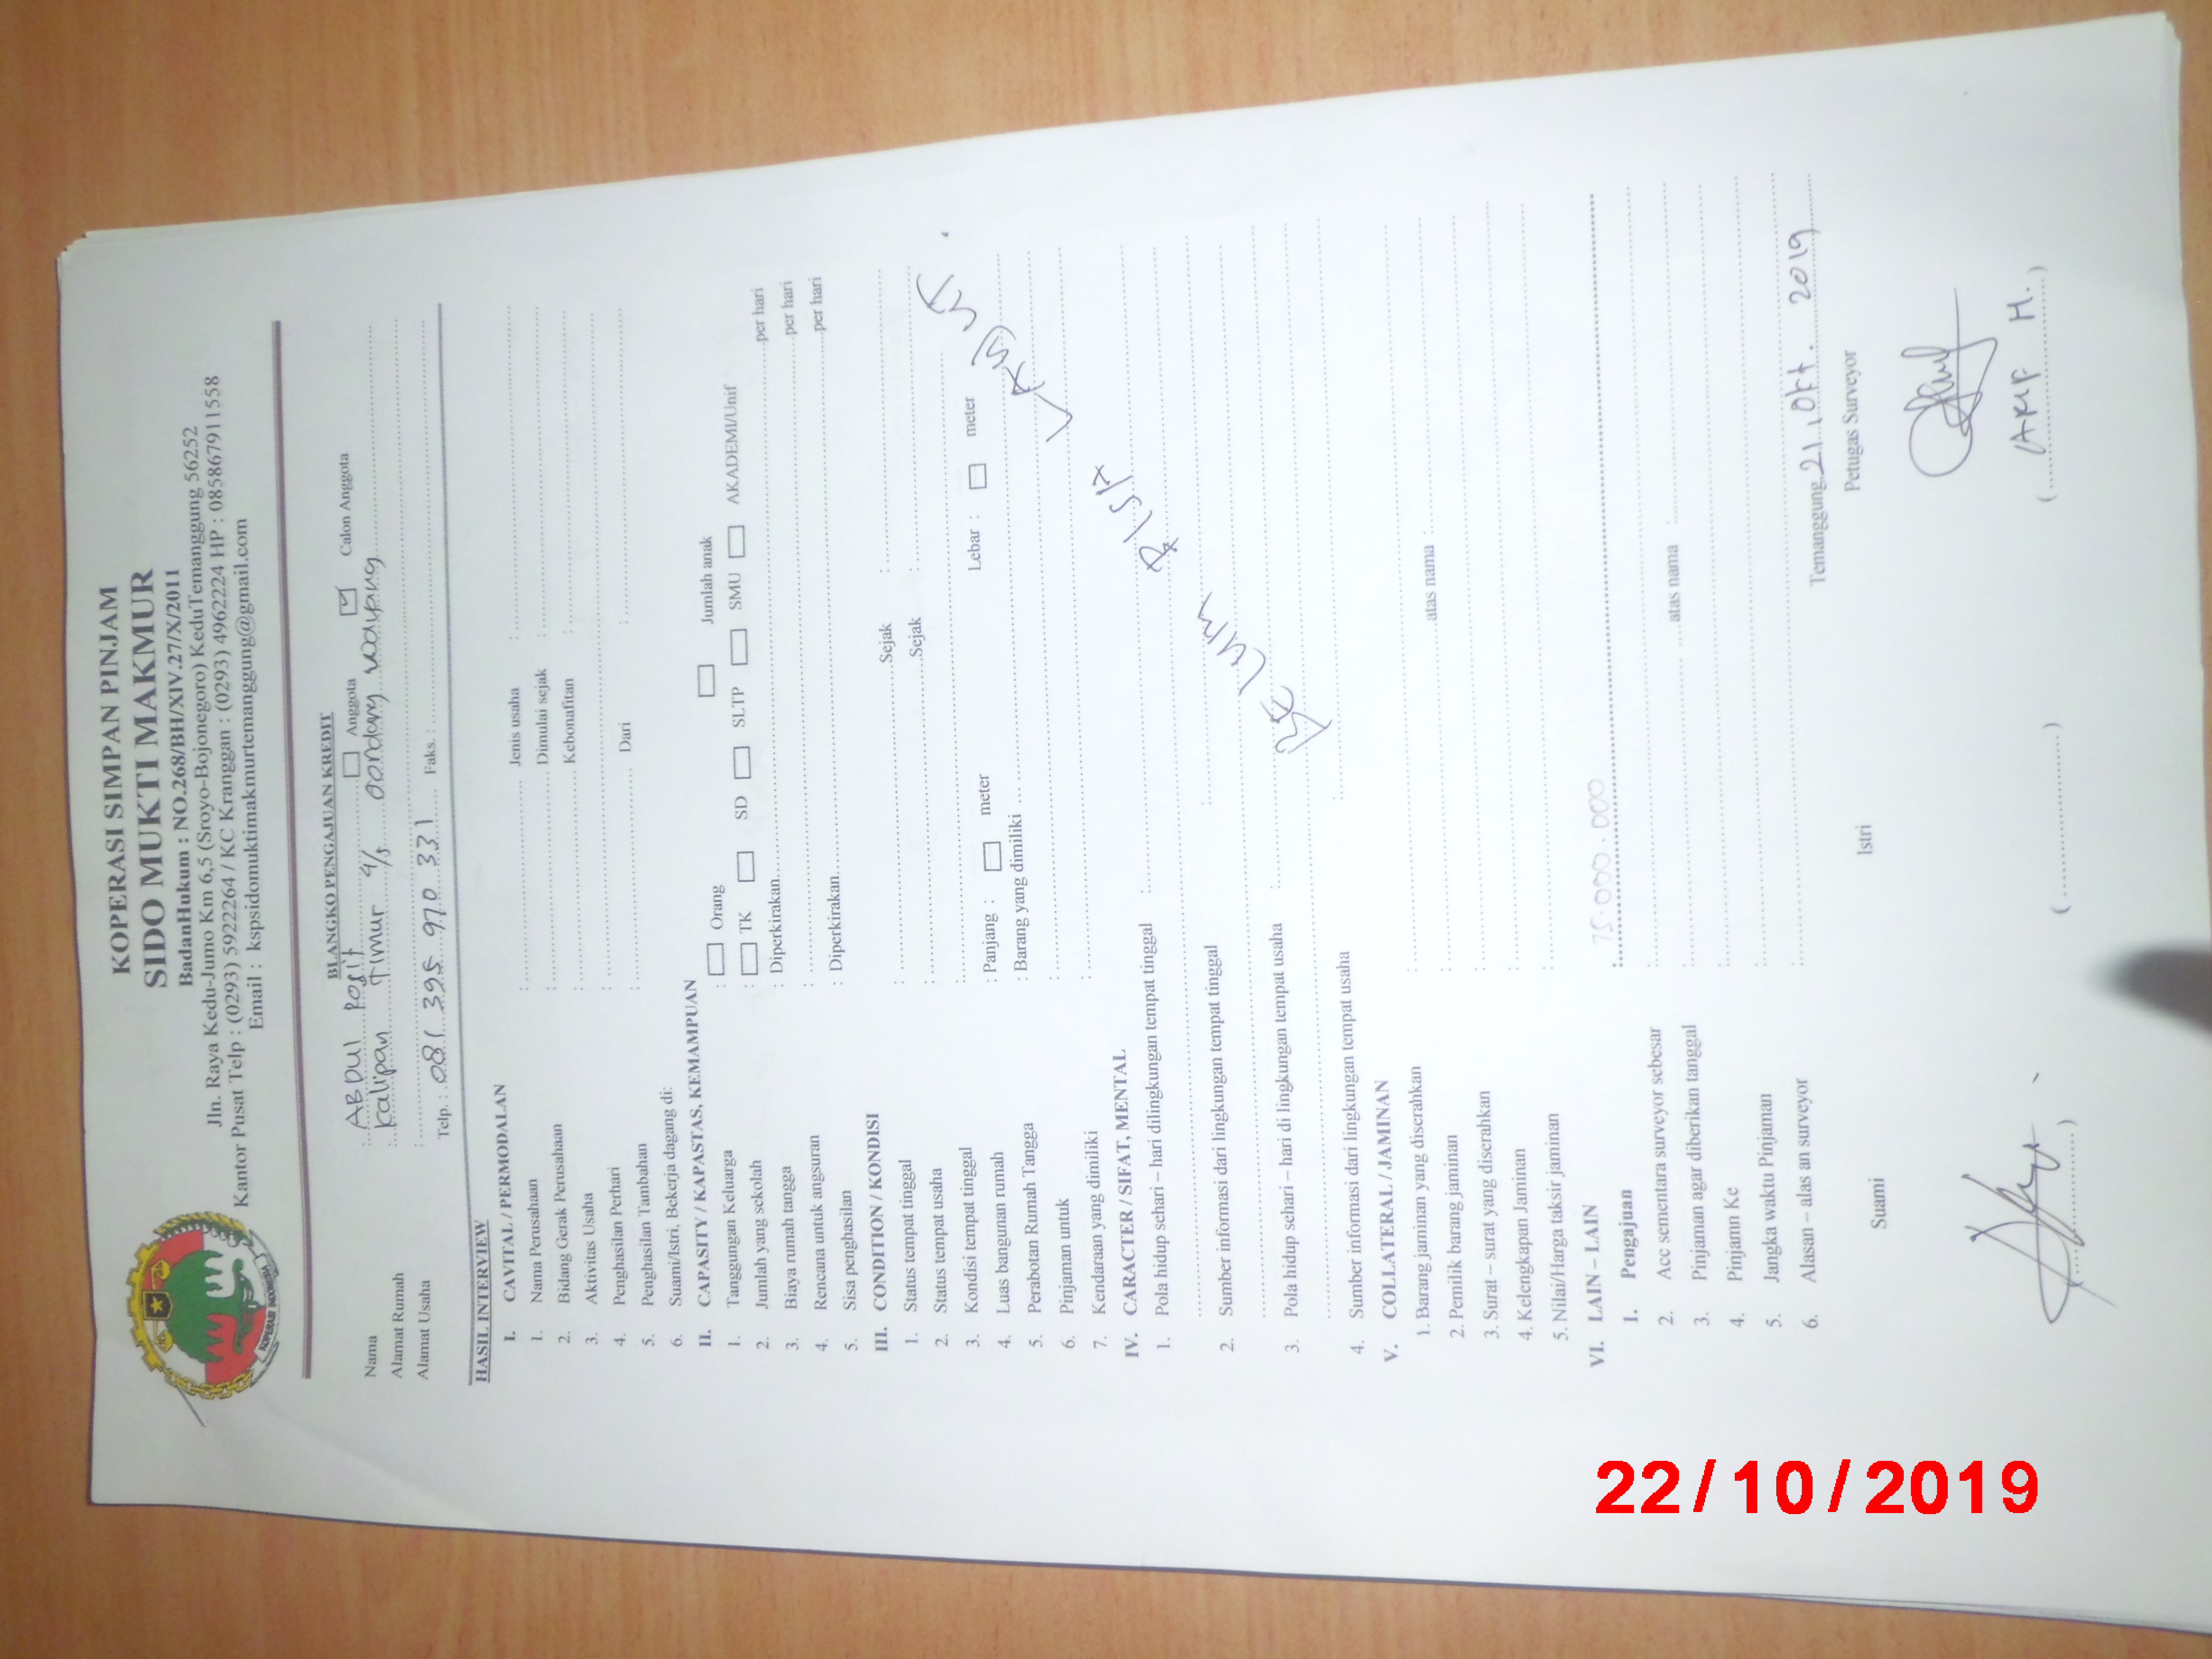 KOPERASI SIMPAN PINJAM
SIDO MUKTI MAKMUR
BadanHukum : NO.268/BH/XIV.27/X/2011
Jln. Raya Kedu-Jumo Km 6,5 (Sroyo-Bojonegoro) KeduTemanggung 56252
Kantor Pusat Telp : (0293) 5922264 / KC Kranggan : (0293) 4962224 HP : 085867911558
Email : kspsidomuktimakmurtemanggung@gmail.com
KOPERASI INDONESIA
BLANGKO PENGAJUAN KREDIT
Nama : ABDUl Rosit Anggota Calon Anggota
Alamat Rumah : Kalipan Timur 4/5
Alamat Usaha :
Telp. : 081 395 970 331 Faks. :
HASIL INTERVIEW
I. CAVITAL / PERMODALAN
1. Nama Perusahaan : Jenis usaha :
2. Bidang Gerak Perusahaan : Dimulai sejak :
3. Aktivitas Usaha : Kebonafitan :
4. Penghasilan Perhari :
5. Penghasilan Tambahan : Dari :
6. Suami/Istri, Bekerja dagang di:
II. CAPASITY / KAPASTAS, KEMAMPUAN
1. Tanggungan Keluarga : Orang Jumlah anak
2. Jumlah yang sekolah : TK SD SLTP SMU AKADEMI/Unif
3. Biaya rumah tangga : Diperkirakan per hari
4. Rencana untuk angsuran : per hari
5. Sisa penghasilan : Diperkirakan per hari
III. CONDITION / KONDISI
1. Status tempat tinggal : Sejak :
2. Status tempat usaha : Sejak :
3. Kondisi tempat tinggal :
4. Luas bangunan rumah : Panjang : meter Lebar : meter
5. Perabotan Rumah Tangga : Barang yang dimiliki
6. Pinjaman untuk :
7. Kendaraan yang dimiliki :
IV. CARACTER / SIFAT, MENTAL
1. Pola hidup sehari – hari dilingkungan tempat tinggal :
2. Sumber informasi dari lingkungan tempat tinggal :
3. Pola hidup sehari – hari di lingkungan tempat usaha :
4. Sumber informasi dari lingkungan tempat usaha :
V. COLLATERAL / JAMINAN
1. Barang jaminan yang diserahkan : atas nama :
2. Pemilik barang jaminan :
3. Surat – surat yang diserahkan :
4. Kelengkapan Jaminan :
5. Nilai/Harga taksir jaminan :
VI. LAIN – LAIN
1. Pengajuan : 75.000.000
2. Acc sementara surveyor sebesar : atas nama :
3. Pinjaman agar diberikan tanggal :
4. Pinjamn Ke :
5. Jangka waktu Pinjaman :
6. Alasan – alas an surveyor :
Temanggung 21, Okt. 2019
Suami Istri Petugas Surveyor
22/10/2019